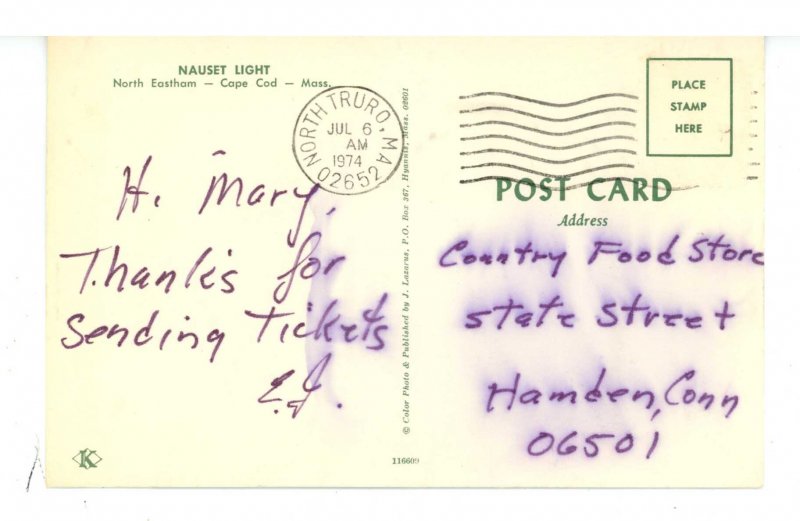 NAUSET LIGHT
North Eastham — Cape Cod — Mass.
NORTH TRURO, MA
JUL 6
AM
1974
02652
Hi Mary,
Thanks for
Sending Tickets
E.J.
© Color Photo & Published by J. Lazarus, P.O. Box 367, Hyannis, Mass. 02601
PLACE
STAMP
HERE
POST CARD
Address
Country Food Store
State Street
Hamden, Conn
06501
K
116609